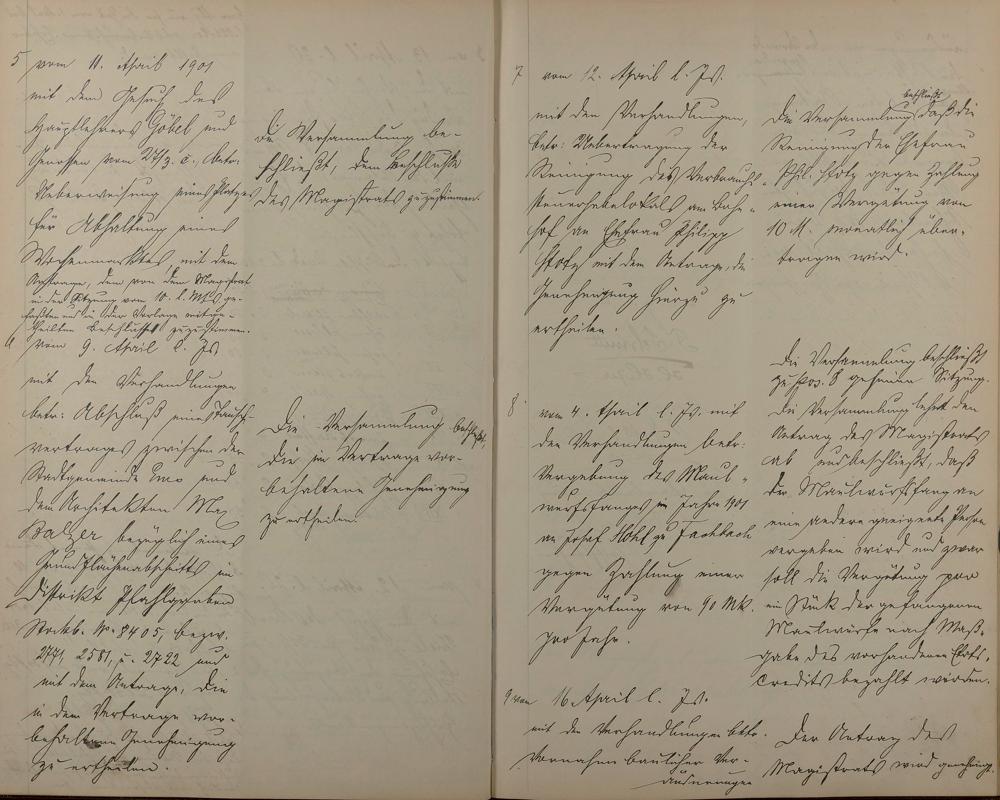 5 vom 11. April 1901
mit dem Gesuch des
Hauptlehrers Göbel und
Genossen vom 27/3. c., betr:
Ueberweisung eines Platzes
für Abhaltung eines
Wochenmarktes, mit dem
Antrage, dem von dem Magistrat
in der Sitzung vom 10. l. Mts. ge-
faßten und in der Vorlage mitge-
theilten Beschlusse zuzustimmen.
Die Versammlung be-
schließt, dem Beschlusse
des Magistrats zuzustimmen.
6 vom 9. April l. Js.
mit den Verhandlungen
betr: Abschluß eines Tausch-
vertrages zwischen der
Stadtgemeinde Ems und
dem Architekten Max
Balzer bezüglich eines
Grundflächenabschnitts im
Distrikt Pfahlgraben
Stockb. No. 8405, bezw.
2771, 2581, u. 2722 und
mit dem Antrage, die
in dem Vertrage vor-
behaltene Genehmigung
zu ertheilen.
Die Versammlung beschließt,
die im Vertrage vor-
behaltene Genehmigung
zu ertheilen.
7 vom 12. April l. Js.
mit den Verhandlungen,
betr: Uebertragung der
Reinigung des Verbrauchs-
steuerhebelokals am Bahn-
hof an Ehefrau Philipp
Stotz mit dem Antrage, die
Genehmigung hierzu zu
ertheilen.
beschließt
Die Versammlung daß die
Reinigung der Ehefrau
Phil. Stotz gegen Zahlung
einer Vergütung von
10 M. monatlich über-
tragen wird.
8 vom 4. April l. Js. mit
den Verhandlungen betr:
Vergebung des Maul-
wurfsfanges im Jahre 1901
an Josef Hohl zu Fachbach
gegen Zahlung einer
Vergütung von 90 Mk.
pro Jahr.
Die Versammlung beschließt
zu Pos. 8 geheime Sitzung.
Die Versammlung lehnt den
Antrag des Magistrats
ab und beschließt, daß
der Maulwurfsfang an
eine andere geeignete Person
vergeben wird und zwar
soll die Vergütung pro
ein Stück der gefangenen
Maulwürfe nach Maß-
gabe des vorhandenen Etats-
credits bezahlt werden.
9 vom 16. April l. Js.
mit den Verhandlungen betr.
Vornahme baulicher Ver-
änderungen
Der Antrag des
Magistrats wird genehmigt.